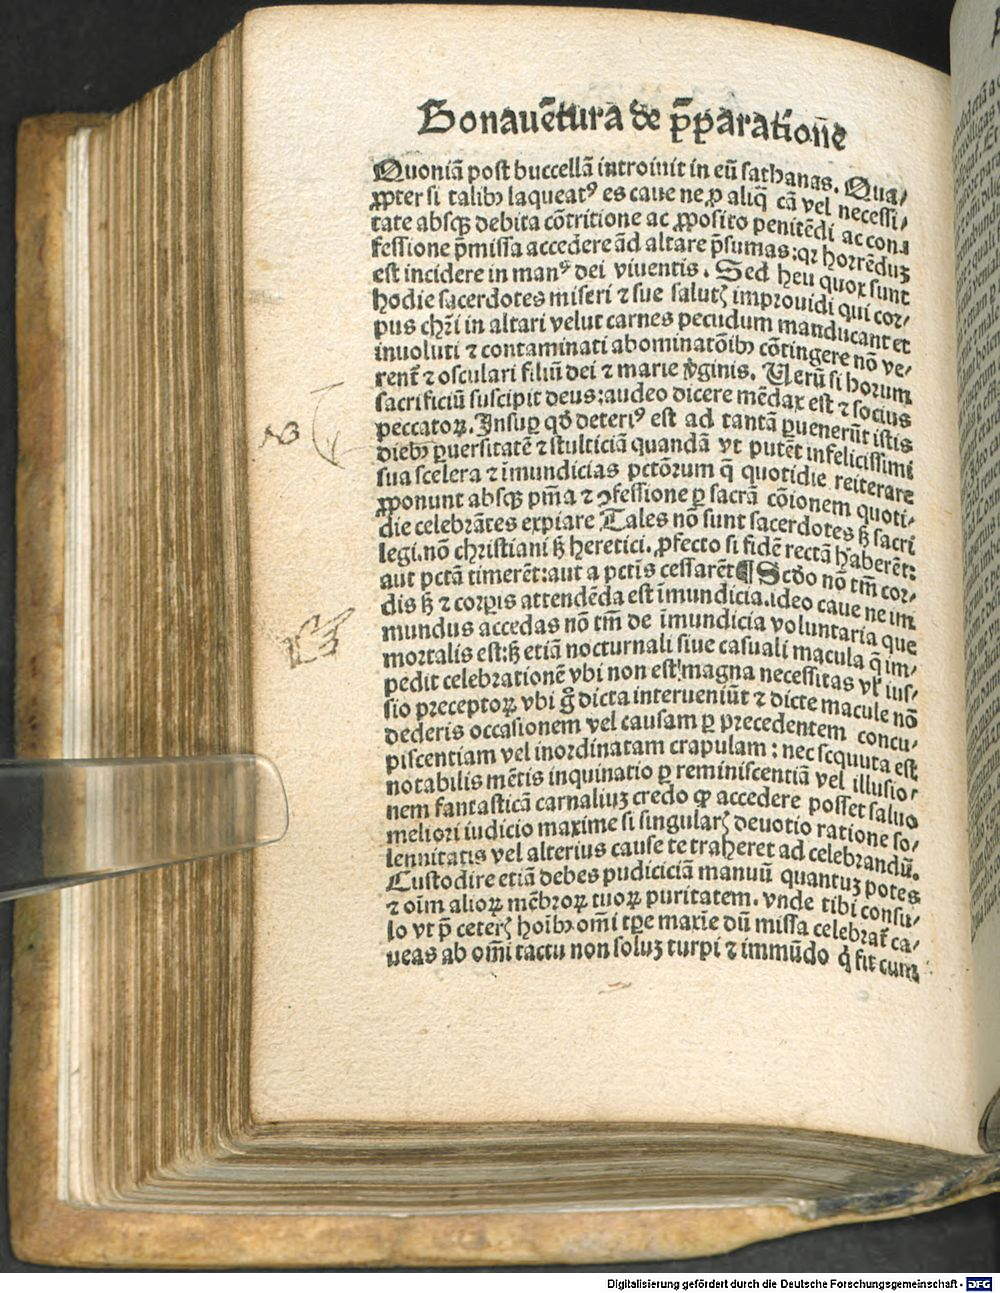 Bonauētura de p̄paratiōe
Quoniā post buccellā introiuit in eū sathanas. Qua/
ꝓpter si talibꝫ laqueatꝰ es caue ne ꝓ aliq̄ cā vel necessi/
tate absqꝫ debita cōtritione ac ꝓposito penitēdi ac con/
fessione p̄missa accedere ad altare p̄sumas: qꝛ horrēduꝫ
est incidere in manꝰ dei viuentis. Sed heu quoꝝ sunt
hodie sacerdotes miseri ⁊ sue salutꝭ improuidi qui cor/
pus chr̄i in altari velut carnes pecudum manducant et
inuoluti ⁊ contaminati abominatōibꝫ cōtingere nō ve/
rent̄ ⁊ osculari filiū dei ⁊ marie v̓ginis. Uerū si horum
sacrificiū suscipit deus: audeo dicere mēdax est ⁊ socius
peccatoꝝ. Insuꝑ qd̓ deteriꝰ est ad tantā ꝑuenerūt istis
diebꝫ ꝑuersitatē ⁊ stulticiā quandā vt putēt infelicissimi
sua scelera ⁊ īmundicias pctōrum q̄ quotidie reiterare
ꝓponunt absqꝫ pn̄ia ⁊ ꝯfessione ꝑ sacrā cōionem quoti/
die celebrātes expiare Tales nō sunt sacerdotes sꝫ sacri
legi. nō christiani sꝫ heretici. ꝓfecto si fidē rectā haberēt:
aut pctā timerēt: aut a pctis cessarēt ¶ Scdo nō tm̄ cor/
dis sꝫ ⁊ corꝑis attendēda est īmundicia. ideo caue ne im
mundus accedas nō tm̄ de īmundicia voluntaria que
mortalis est: sꝫ etiā nocturnali siue casuali macula q̄ im/
pedit celebrationē vbi non est magna necessitas vl̓ ius/
sio preceptoꝝ. vbi g̊ dicta interueniūt ⁊ dicte macule nō
dederis occasionem vel causam ꝑ precedentem concu/
piscentiam vel inordinatam crapulam: nec sequuta est
notabilis mētis inquinatio ꝑ reminiscentiā vel illusio/
nem fantasticā carnaliuꝫ credo ꝙ accedere posset saluo
meliori iudicio maxime si singularꝭ deuotio ratione so/
lennitatis vel alterius cause te traheret ad celebrandū.
Custodire etiā debes pudiciciā manuū quantuꝫ potes
⁊ oīm alioꝝ mēbroꝝ tuoꝝ puritatem. vnde tibi consu/
lo vt p̄ ceterꝭ hoībꝫ omī tꝑe maxīe dū missa celebrat̄ ca/
ueas ab omī tactu non soluꝫ turpi ⁊ immūdo q̓ fit cum
NB
Digitalisierung gefördert durch die Deutsche Forschungsgemeinschaft - DFG